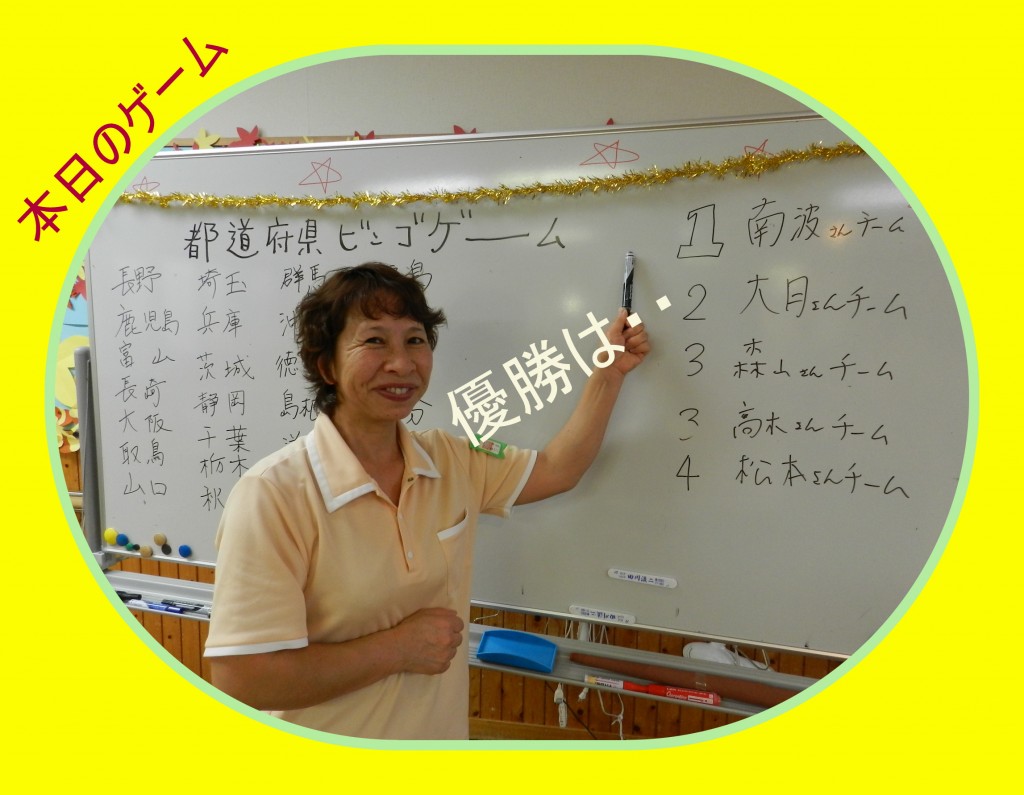 本日のゲーム
優勝は・・
都道府県ビンゴゲーム
長野 埼玉 群馬 島
鹿児島 兵庫 沖
富山 茨城 徳
長崎 静岡 島根 分
大阪 千葉
取鳥 栃木
山口 秋
1 南波さんチーム
2 大月さんチーム
3 森山さんチーム
3 高木さんチーム
4 松本さんチーム